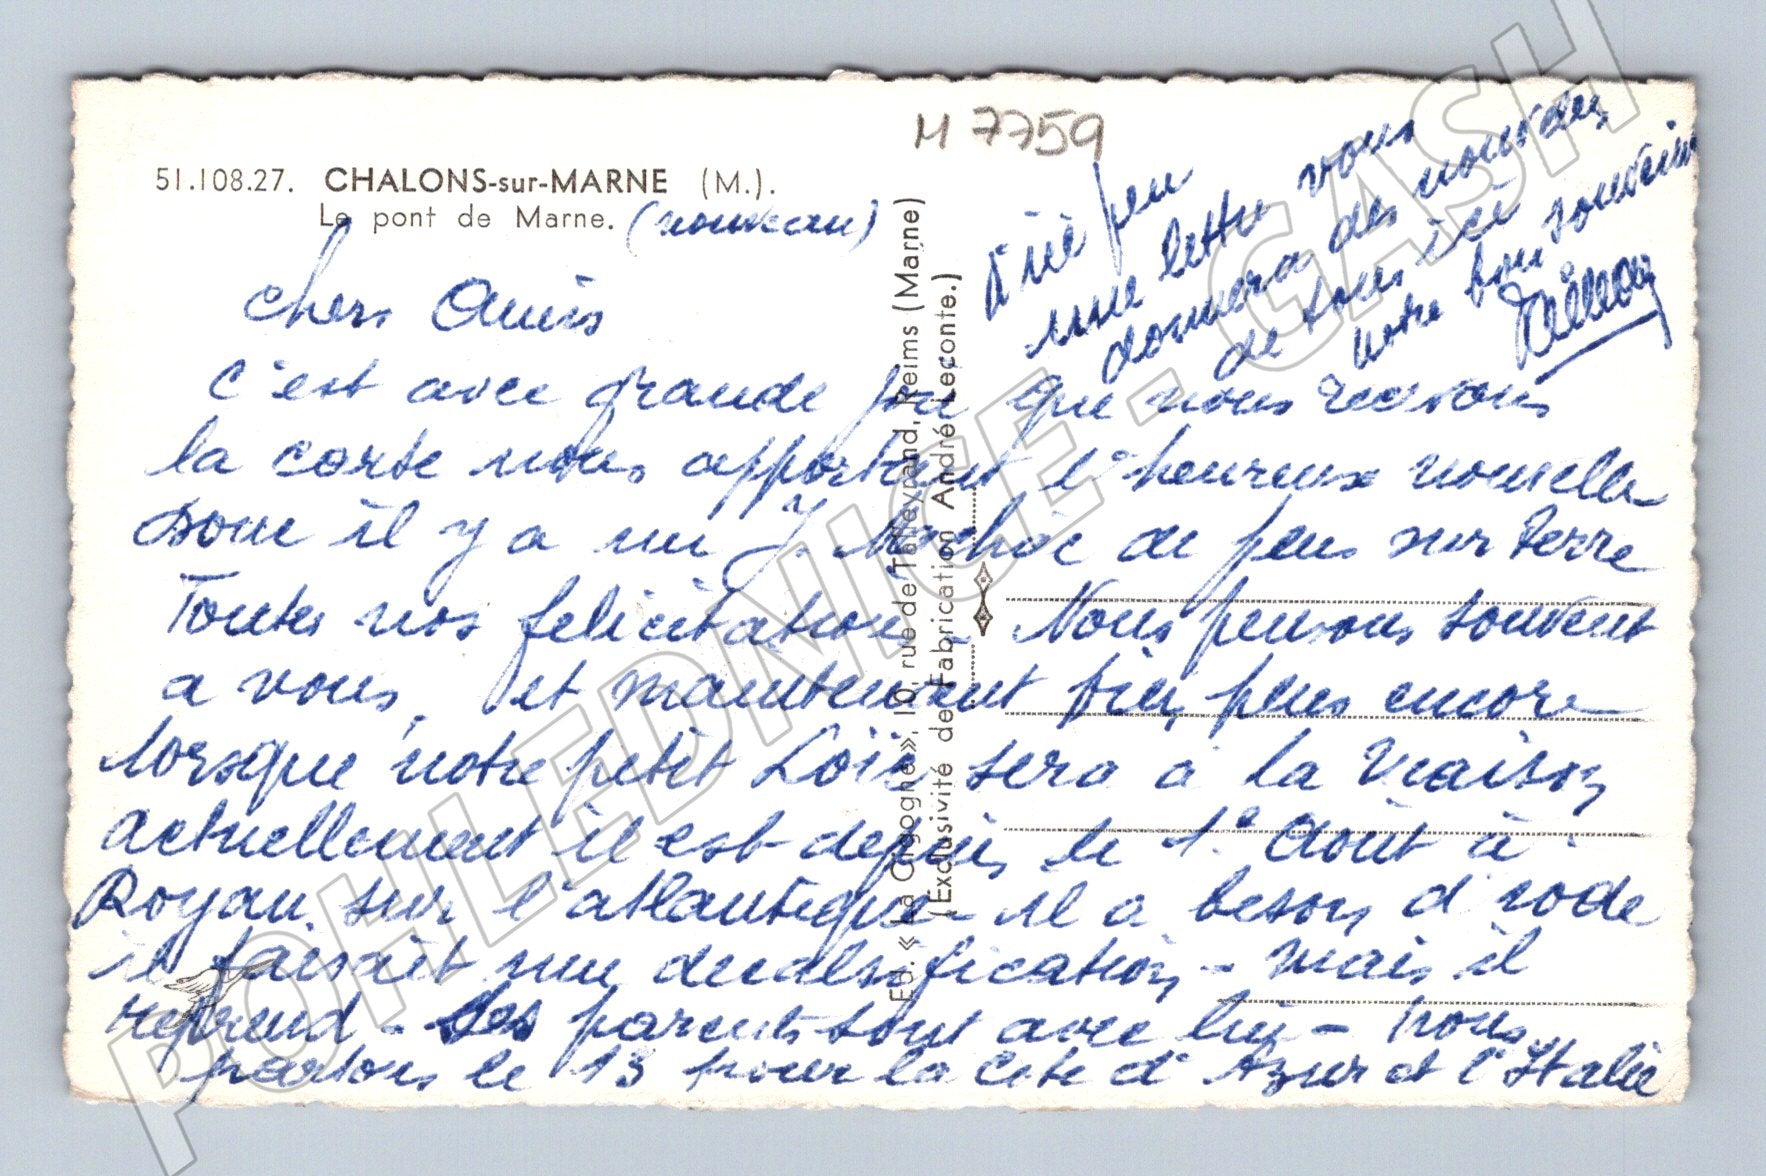 M 7759
51.108.27. CHALONS-sur-MARNE (M.).
Le pont de Marne. (nouveau)
chers Amis
c'est avec grande joie que nous recevons
la carte nous apportant l'heureuse nouvelle
donc il y a un J. de plus sur terre
Toutes nos felicitations - Nous pensons souvent
a vous, et maintenant bien plus encore
lorsque notre petit Loïc sera à la maison
actuellement il est depuis le 1° Août à
Royan sur l'atlantique - il a besoin d'iode
il faisait une decalsification - mais il
reprend - ses parents sont avec lui - nous
partons le 13 pour la Cote d'Azur et l'Italie
D'ici peu
une lettre vous
donnera des nouvelles
de tous ici
votre bon souvenir
Ed. « La Cigogne », 10, rue de Talleyrand, Reims (Marne)
(Exclusivité de Fabrication André Leconte.)
POHLEDNICE - GASH